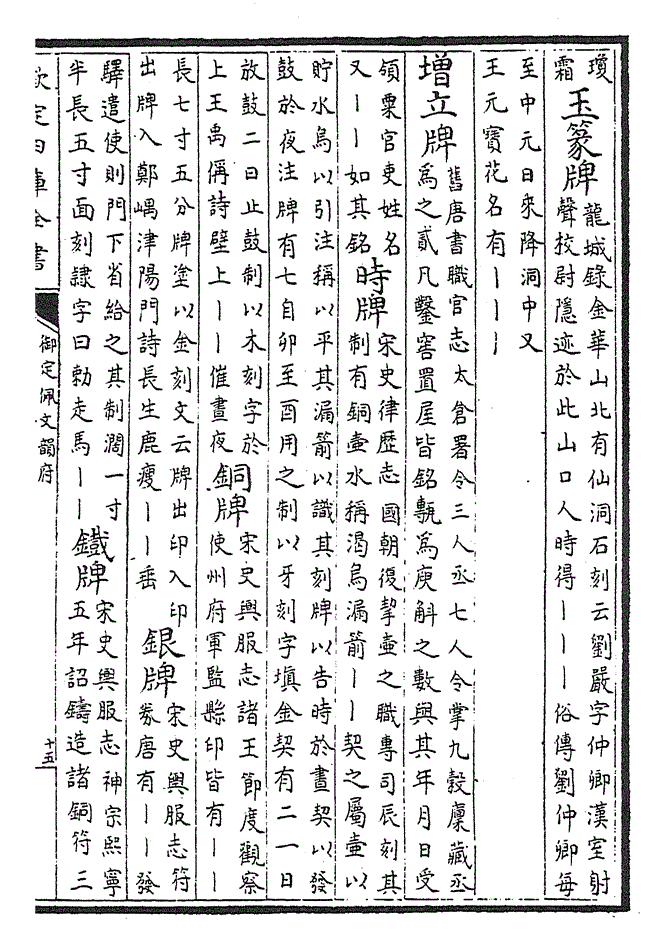 瓊
霜
玉篆牌
龍城錄金華山北有仙洞石刻云劉嚴字仲卿漢室射
聲校尉隱迹於此山口人時得｜｜｜俗傳劉仲卿每
至中元日來降洞中又
王元寳花名有｜｜｜
增立牌
舊唐書職官志太倉署令三人丞七人令掌九穀廩藏丞
為之貳凡鑿窖置屋皆銘甎為庾斛之數與其年月日受
領粟官吏姓名
又｜｜如其銘
時牌
宋史律歴志國朝復挈壷之職專司辰刻其
制有銅壷水稱渴烏漏箭｜｜契之屬壷以
貯水烏以引注稱以平其漏箭以識其刻牌以告時於晝契以發
鼓於夜注牌有七自卯至酉用之制以牙刻字填金契有二一曰
放鼓二曰止鼓制以木刻字於
上王禹偁詩壁上｜｜催晝夜
銅牌
宋史輿服志諸王節度觀察
使州府軍監縣印皆有｜｜
長七寸五分牌塗以金刻文云牌出印入印
出牌入鄭嵎津陽門詩長生鹿瘦｜｜垂
銀牌
宋史輿服志符
券唐有｜｜發
驛遣使則門下省給之其制濶一寸
半長五寸面刻隷字曰勅走馬｜｜
鐵牌
宋史輿服志神宗熙寧
五年詔鑄造諸銅符三
欽定四庫全書
御定佩文韻府
十五